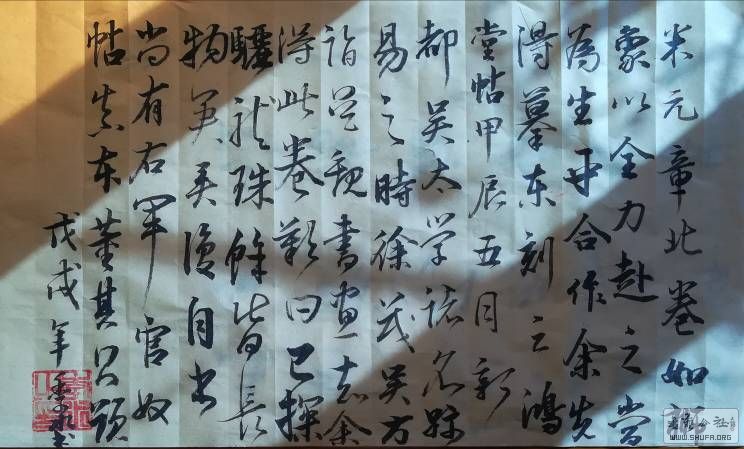 米元章此卷如
象以全力赴之當
為生平合作余先
得摹本刻之鴻
堂帖甲辰五月新
都吴太學諸名跡
易之時徐茂吴方
詣吴觀書畫知余
得此卷歎曰已探
驪龍珠餘皆長
物矣復自
尚有右軍官奴
帖真本董其昌題
戊戌年書
WWW.SHUFA.ORG